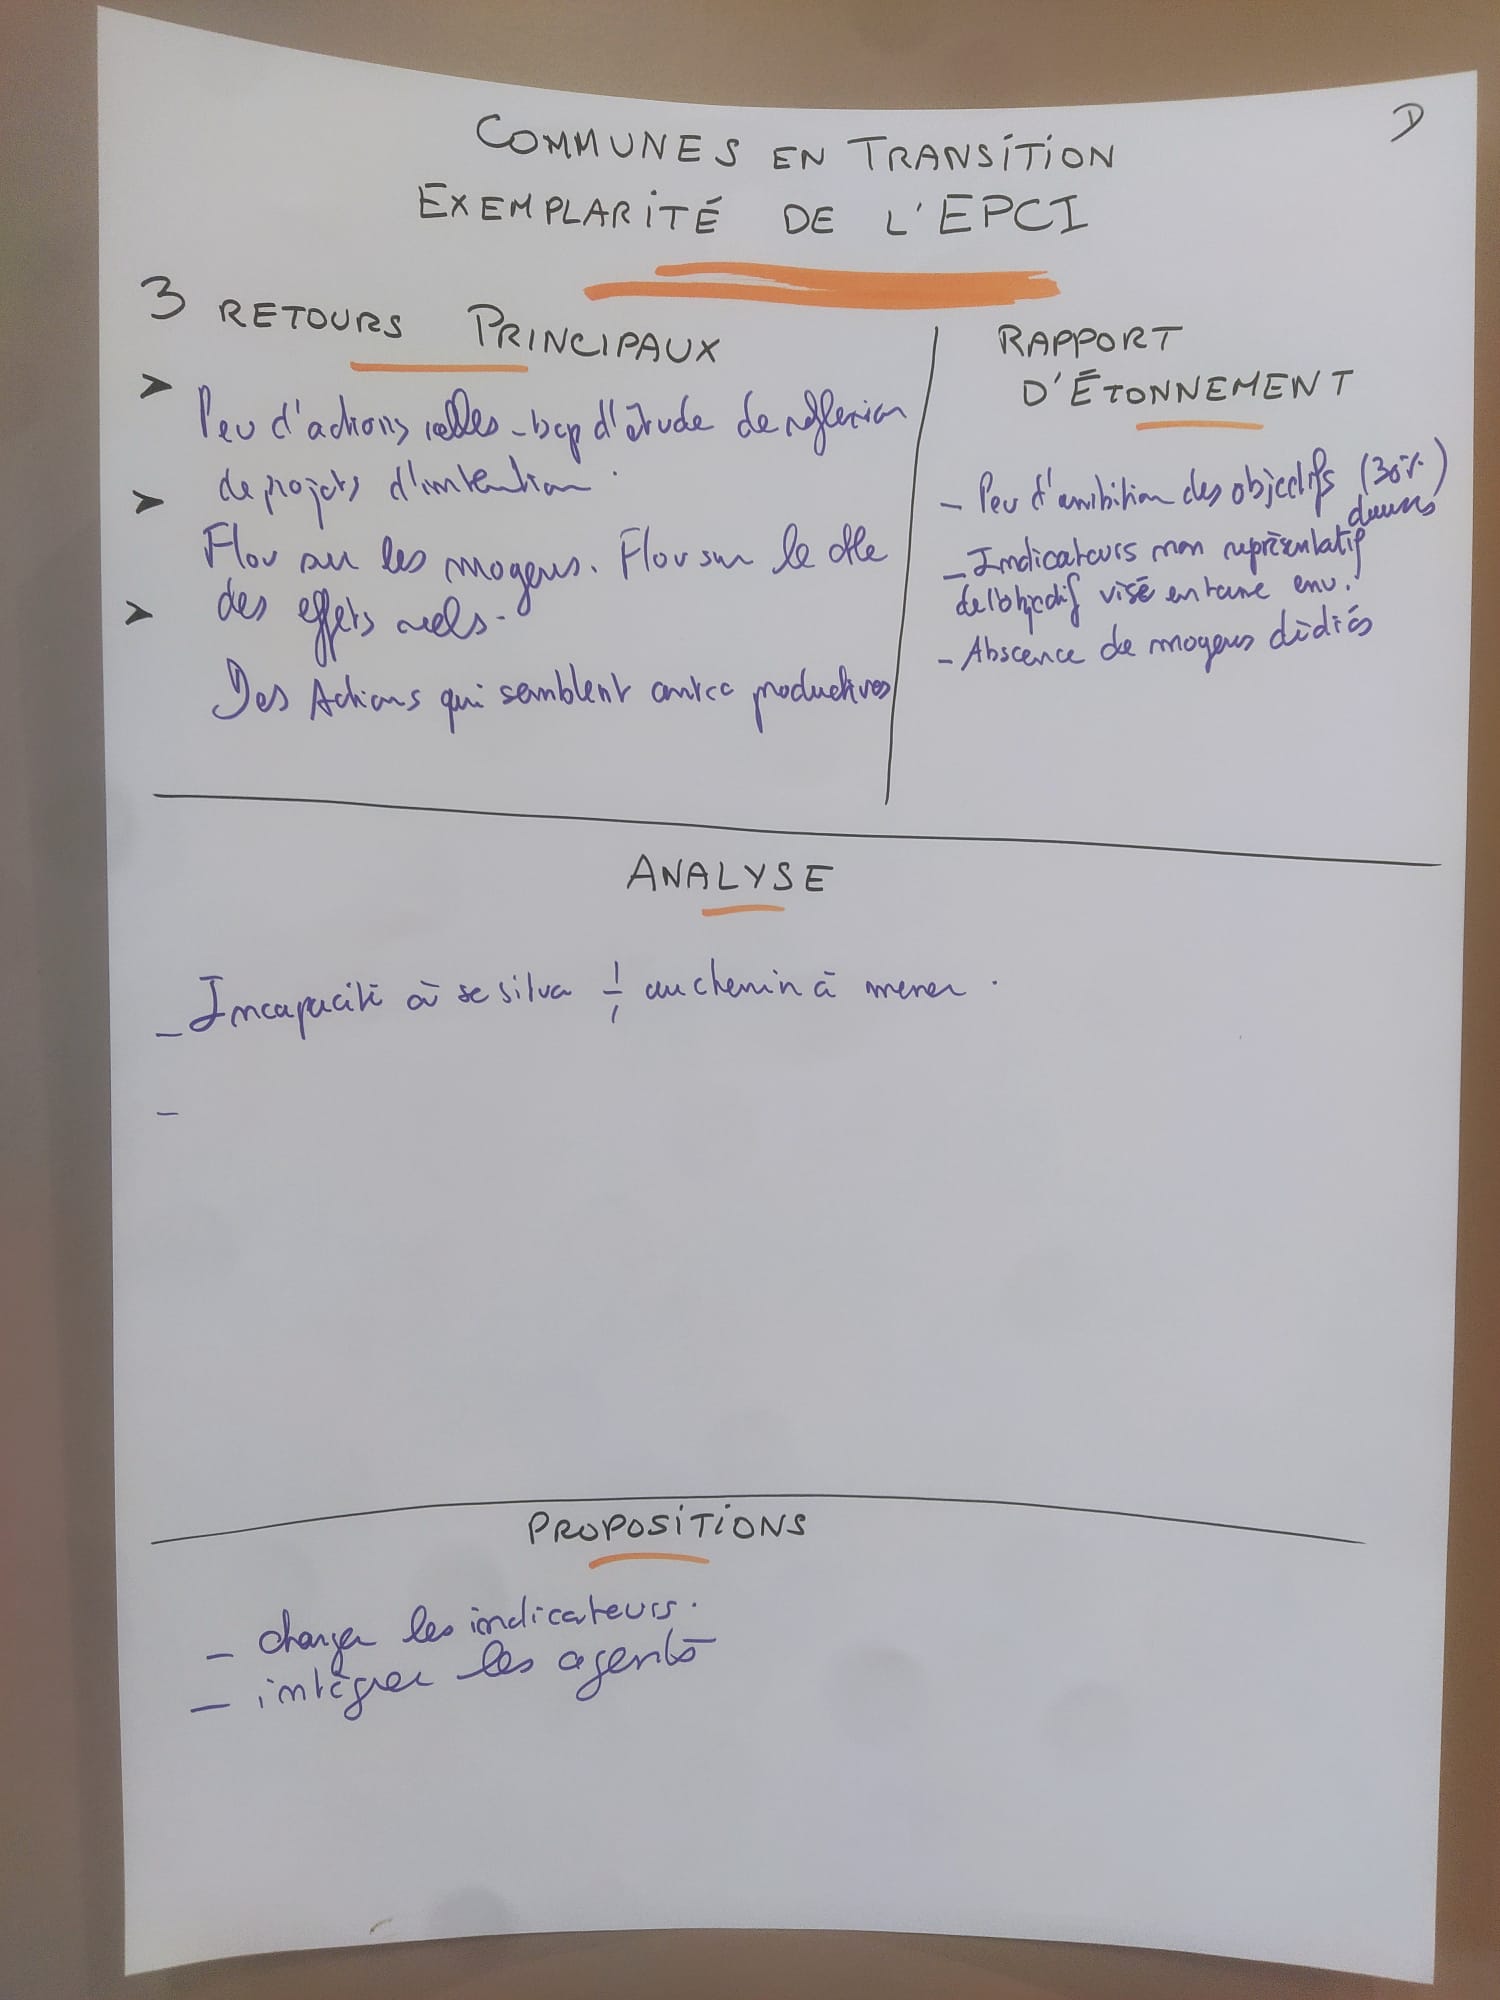 D
COMMUNES EN TRANSITION
EXEMPLARITÉ DE L'EPCI
3 RETOURS PRINCIPAUX
Peu d'actions réelles - bcp d'étude de réflexion
de projets d'intention.
Flou sur les moyens. Flou sur le
des effets réels.
Des Actions qui semblent contre productives
RAPPORT
D'ÉTONNEMENT
- Peu d'ambition des objectifs (30%)
- Indicateurs non représentatif
de l'objectif visé en terme env.
- Abscence de moyens dédiés
ANALYSE
- Incapacité à se situer / au chemin à mener.
-
PROPOSITIONS
- changer les indicateurs.
- intégrer les agents